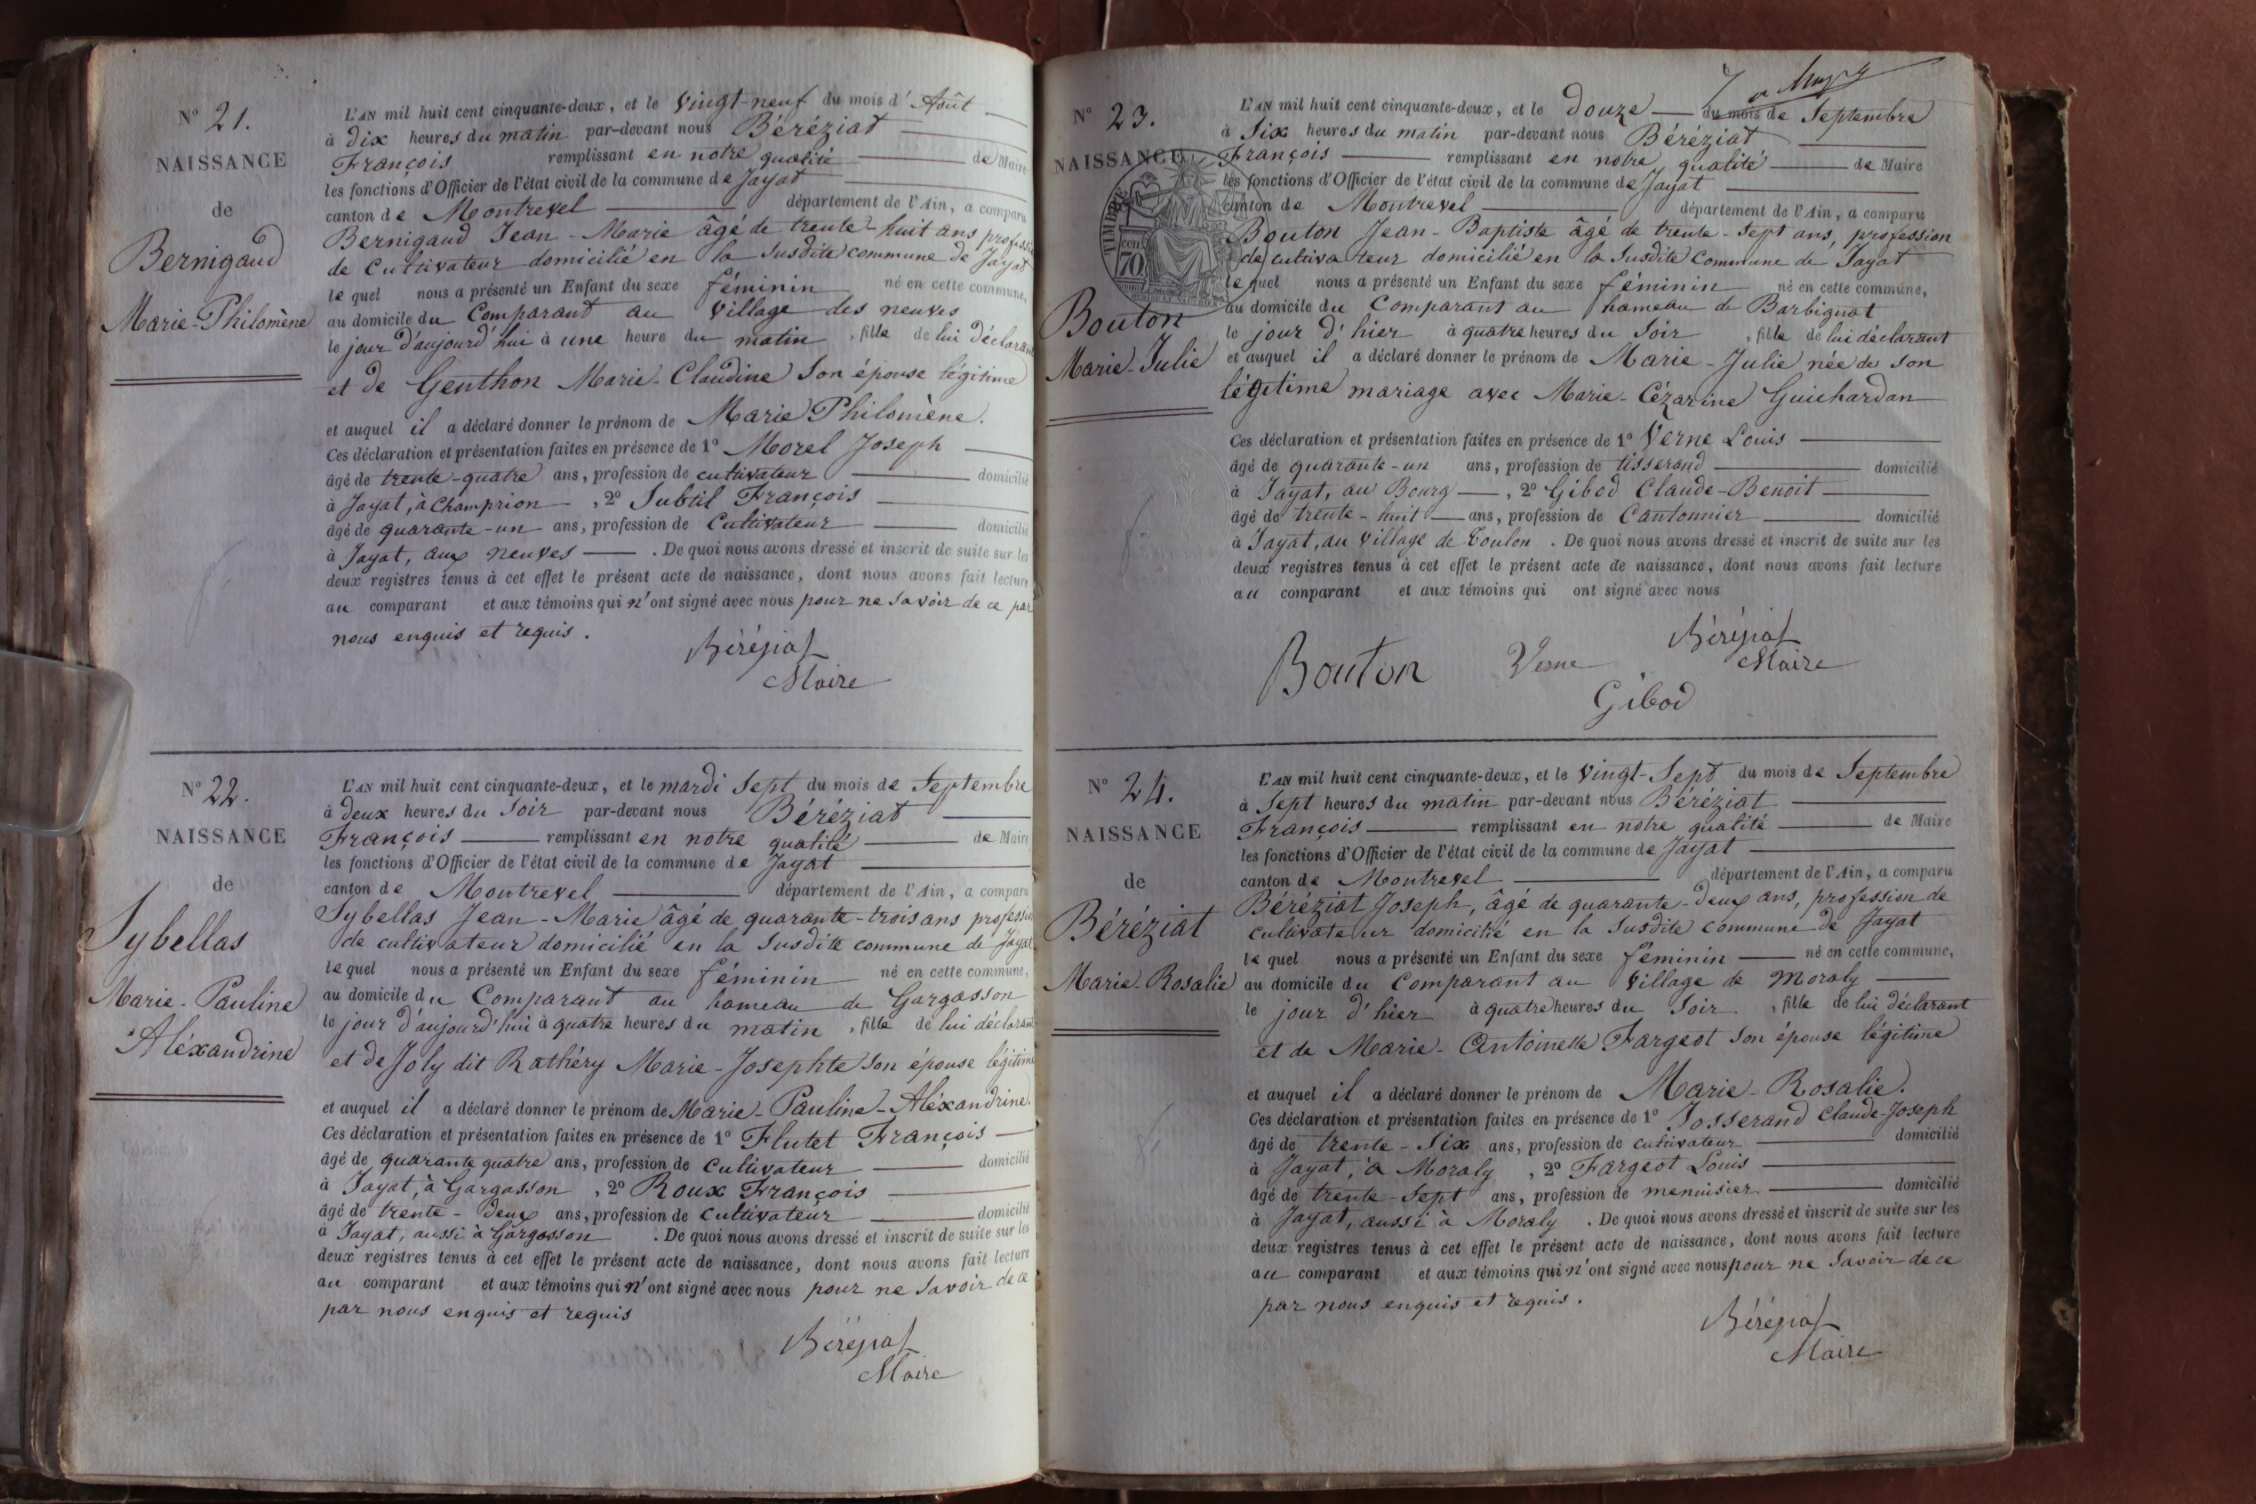 N° 21.
NAISSANCE
de
Bernigaud
Marie-Philomène
L'AN mil huit cent cinquante-deux, et le vingt-neuf du mois d'Août
à dix heures du matin par-devant nous Béréziat
François remplissant en notre qualité de Maire
les fonctions d'Officier de l'état civil de la commune de Jayat
canton de Montrevel département de l'Ain, a comparu
Bernigaud Jean-Marie âgé de trente-huit ans profession
de cultivateur domicilié en la susdite commune de Jayat
lequel nous a présenté un Enfant du sexe féminin né en cette commune,
au domicile du Comparant au village des neuves
le jour d'aujourd'hui à une heure du matin, fille de lui déclarant
et de Genthon Marie-Claudine son épouse légitime
et auquel il a déclaré donner le prénom de Marie Philomène.
Ces déclaration et présentation faites en présence de 1° Morel Joseph
âgé de trente-quatre ans, profession de cultivateur domicilié
à Jayat, à Champrion, 2° Subtil François
âgé de quarante-un ans, profession de Cultivateur domicilié
à Jayat, aux neuves. De quoi nous avons dressé et inscrit de suite sur les
deux registres tenus à cet effet le présent acte de naissance, dont nous avons fait lecture
au comparant et aux témoins qui n'ont signé avec nous pour ne savoir de ce par
nous enquis et requis.
Béréziat
Maire
N° 22.
NAISSANCE
de
Sybellas
Marie-Pauline
Aléxandrine
L'AN mil huit cent cinquante-deux, et le mardi sept du mois de Septembre
à deux heures du soir par-devant nous Béréziat
François remplissant en notre qualité de Maire
les fonctions d'Officier de l'état civil de la commune de Jayat
canton de Montrevel département de l'Ain, a comparu
Sybellas Jean-Marie âgé de quarante-trois ans profession
de cultivateur domicilié en la susdite commune de Jayat
lequel nous a présenté un Enfant du sexe féminin né en cette commune,
au domicile du Comparant au hameau de Gargasson
le jour d'aujourd'hui à quatre heures du matin, fille de lui déclarant
et de Joly dit Rathéry Marie-Josephte son épouse légitime
et auquel il a déclaré donner le prénom de Marie-Pauline-Aléxandrine.
Ces déclaration et présentation faites en présence de 1° Flutet François
âgé de quarante quatre ans, profession de cultivateur domicilié
à Jayat, à Gargasson, 2° Roux François
âgé de trente-deux ans, profession de cultivateur domicilié
à Jayat, aussi à Gargasson. De quoi nous avons dressé et inscrit de suite sur les
deux registres tenus à cet effet le présent acte de naissance, dont nous avons fait lecture
au comparant et aux témoins qui n'ont signé avec nous pour ne savoir de ce
par nous enquis et requis
Béréziat
Maire
N° 23.
NAISSANCE
TIMBRE
70
Bouton
Marie-Julie
L'AN mil huit cent cinquante-deux, et le douze du mois de Septembre
à Six heures du matin par-devant nous Béréziat
François remplissant en notre qualité de Maire
les fonctions d'Officier de l'état civil de la commune de Jayat
canton de Montrevel département de l'Ain, a comparu
Bouton Jean-Baptiste âgé de trente-sept ans, profession
de cultivateur domicilié en la susdite commune de Jayat
lequel nous a présenté un Enfant du sexe féminin né en cette commune,
au domicile du Comparant au hameau de Barbignat
le jour d'hier à quatre heures du soir, fille de lui déclarant
et auquel il a déclaré donner le prénom de Marie-Julie née de son
légitime mariage avec Marie-Cézarine Guichardan
Ces déclaration et présentation faites en présence de 1° Verne Louis
âgé de quarante-un ans, profession de tisserand domicilié
à Jayat, au Bourg, 2° Gibod Claude-Benoit
âgé de trente-huit ans, profession de Cantonnier domicilié
à Jayat, au village de Toulon. De quoi nous avons dressé et inscrit de suite sur les
deux registres tenus à cet effet le présent acte de naissance, dont nous avons fait lecture
au comparant et aux témoins qui ont signé avec nous
Béréziat
Maire
Bouton Verne
Gibod
N° 24.
NAISSANCE
de
Béréziat
Marie-Rosalie
L'AN mil huit cent cinquante-deux, et le vingt-Sept du mois de Septembre
à Sept heures du matin par-devant nous Béréziat
François remplissant en notre qualité de Maire
les fonctions d'Officier de l'état civil de la commune de Jayat
canton de Montrevel département de l'Ain, a comparu
Béréziat Joseph, âgé de quarante-deux ans, profession de
cultivateur domicilié en la susdite commune de Jayat
lequel nous a présenté un Enfant du sexe féminin né en cette commune,
au domicile du Comparant au village de Moraly
le jour d'hier à quatre heures du soir, fille de lui déclarant
et de Marie-Antoinette Fargeot son épouse légitime
et auquel il a déclaré donner le prénom de Marie-Rosalie.
Ces déclaration et présentation faites en présence de 1° Josserand Claude-Joseph
âgé de trente-six ans, profession de cultivateur domicilié
à Jayat, à Moraly, 2° Fargeot Louis
âgé de trente-sept ans, profession de menuisier domicilié
à Jayat, aussi à Moraly. De quoi nous avons dressé et inscrit de suite sur les
deux registres tenus à cet effet le présent acte de naissance, dont nous avons fait lecture
au comparant et aux témoins qui n'ont signé avec nous pour ne savoir de ce
par nous enquis et requis.
Béréziat
Maire